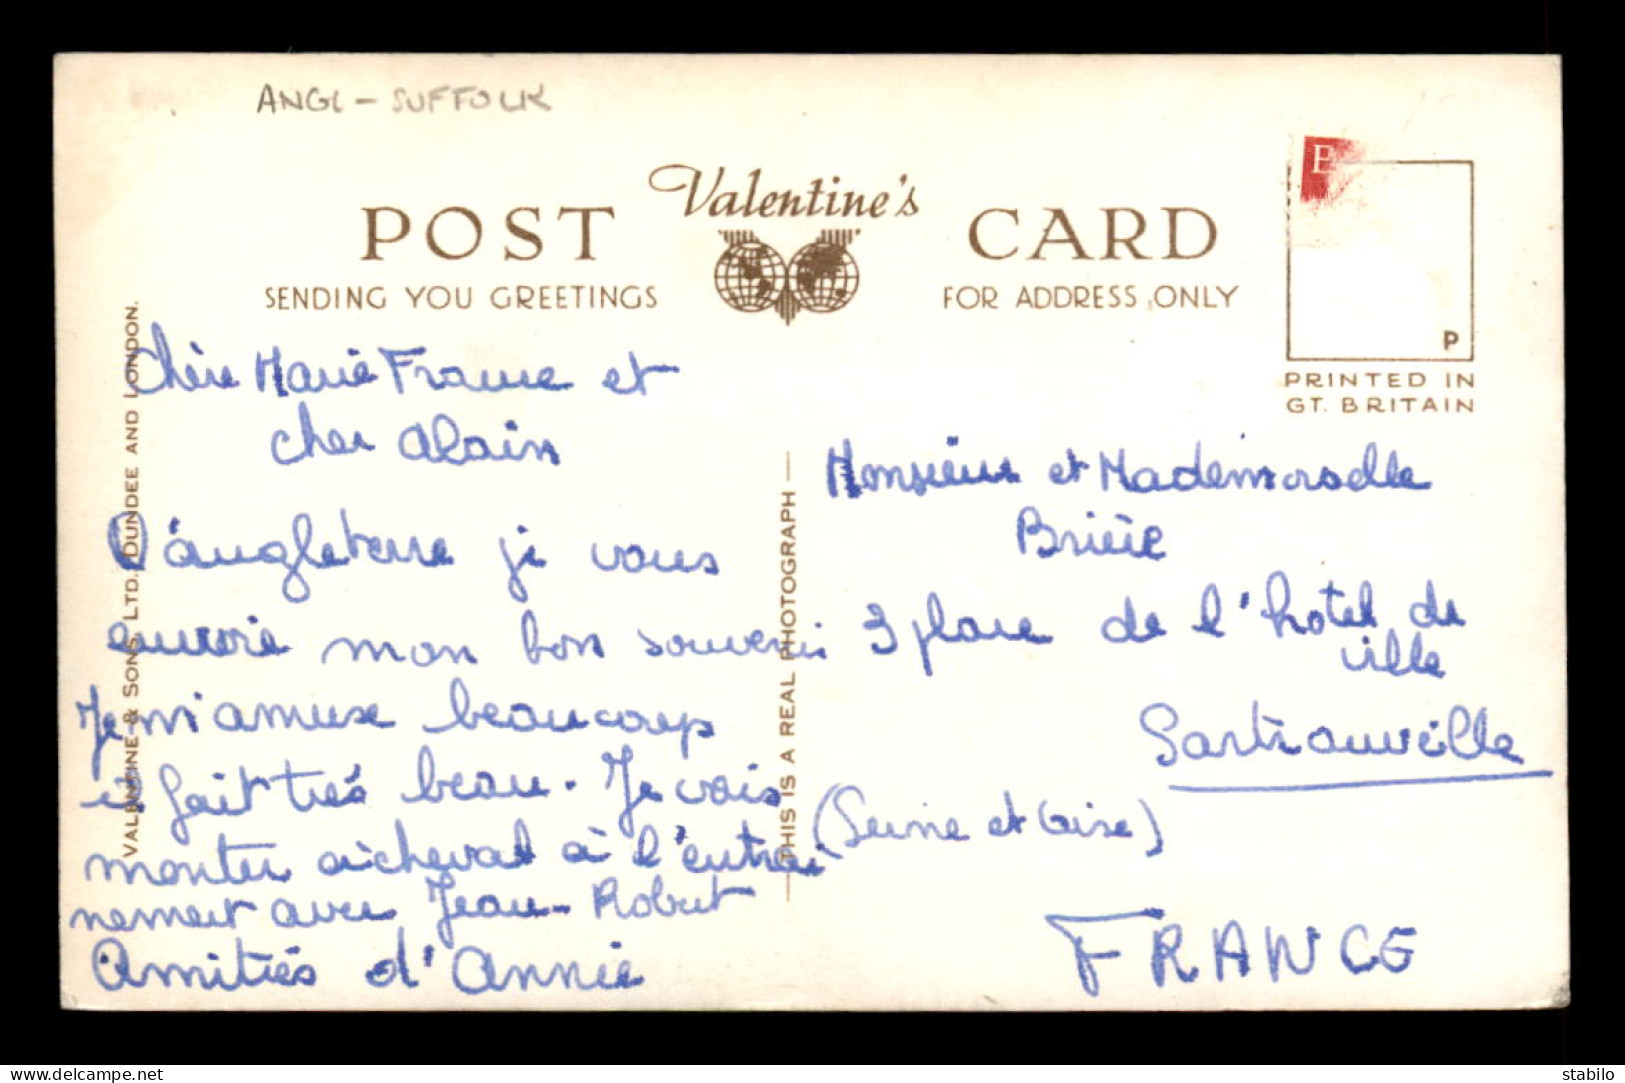 ANGL - SUFFOLK
Valentine's
POST CARD
SENDING YOU GREETINGS
FOR ADDRESS ONLY
E
P
PRINTED IN
GT. BRITAIN
VALENTINE & SONS, LTD. DUNDEE AND LONDON.
THIS IS A REAL PHOTOGRAPH
Chère Marie France et
cher Alain
D'angleterre je vous
envoie mon bon souvenir
Je m'amuse beaucoup
il fait très beau. Je vais
monter à cheval à l'entrai
nement avec Jean-Robert
Amitiés d'Annie
Monsieur et Mademoiselle
Brière
3 place de l'hotel de
ville
Sartrouville
(Seine et Oise)
FRANCE
www.delcampe.net
stabilo